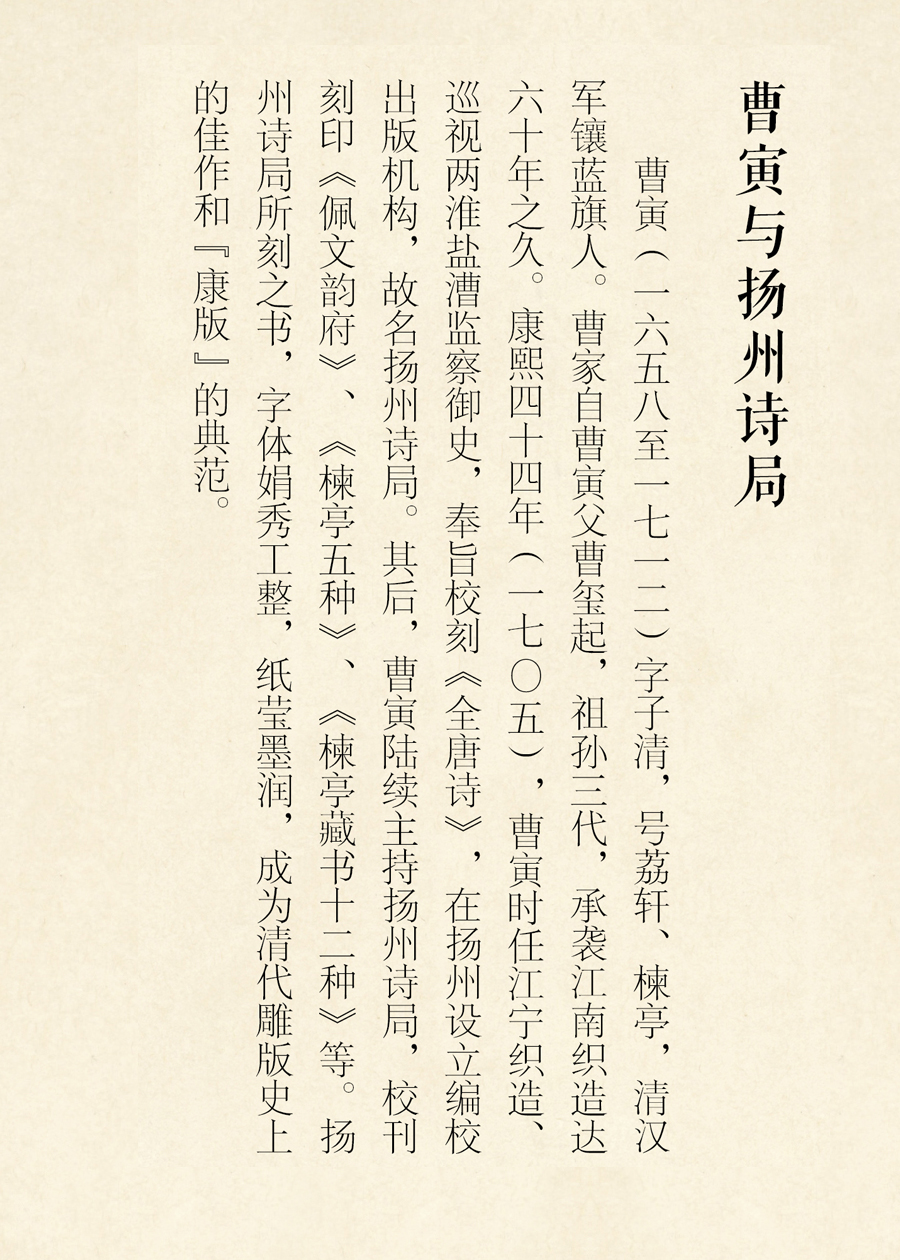 曹寅与扬州诗局
曹寅（一六五八至一七一二）字子清，号荔轩、楝亭，清汉
军镶蓝旗人。曹家自曹寅父曹玺起，祖孙三代，承袭江南织造达
六十年之久。康熙四十四年（一七〇五），曹寅时任江宁织造、
巡视两淮盐漕监察御史，奉旨校刻《全唐诗》，在扬州设立编校
出版机构，故名扬州诗局。其后，曹寅陆续主持扬州诗局，校刊
刻印《佩文韵府》、《楝亭五种》、《楝亭藏书十二种》等。扬
州诗局所刻之书，字体娟秀工整，纸莹墨润，成为清代雕版史上
的佳作和『康版』的典范。